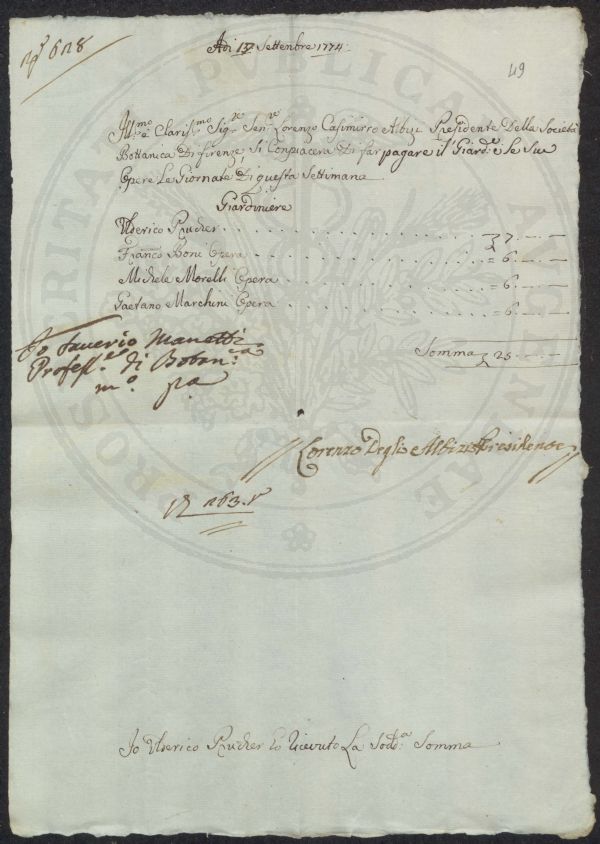 Adi 17 Settembre 1774
49
Ill:mo e Claris:mo Sig:re Sen:re Lorenzo Casimirro Albizi Presidente Della Società
Bottanica Di firenze, Si Conpiacera Di far pagare il Giard:e e Le Sue
Opere Le Giornate Di questa Settimana
Giardiniere
Ulderico Prucher . . . 7 . —
Franco Boni Opera . . . = 6 . —
Michele Morelli Opera . . . = 6 . —
Gaetano Marchini Opera . . . = 6 . —
Somma 25 . —
Io Saverio Manetti
Profess:e di Botan:ca
m:o pa
Lorenzo Degli Albizi Presidente
263
Io Ulderico Prucher Ho Ricevuto La Sodd:a Somma
PROSPERITATI PUBLICAE AUGENDAE